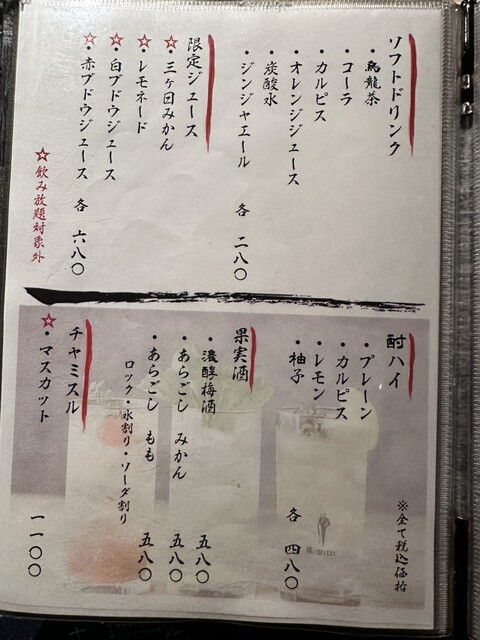 ソフトドリンク
・烏龍茶
・コーラ
・カルピス
・オレンジジュース
・炭酸水
・ジンジャエール 各 二八〇
限定ジュース
☆・三ケ日みかん
☆・レモネード
☆・白ブドウジュース
☆・赤ブドウジュース 各 六八〇
☆飲み放題対象外
※全て税込価格
酎ハイ
・プレーン
・カルピス
・レモン
・柚子 各 四八〇
果実酒
・濃醇梅酒 五八〇
・あらごし みかん 五八〇
・あらごし もも 五八〇
ロック・水割り・ソーダ割り
チャミスル
☆・マスカット 一一〇〇